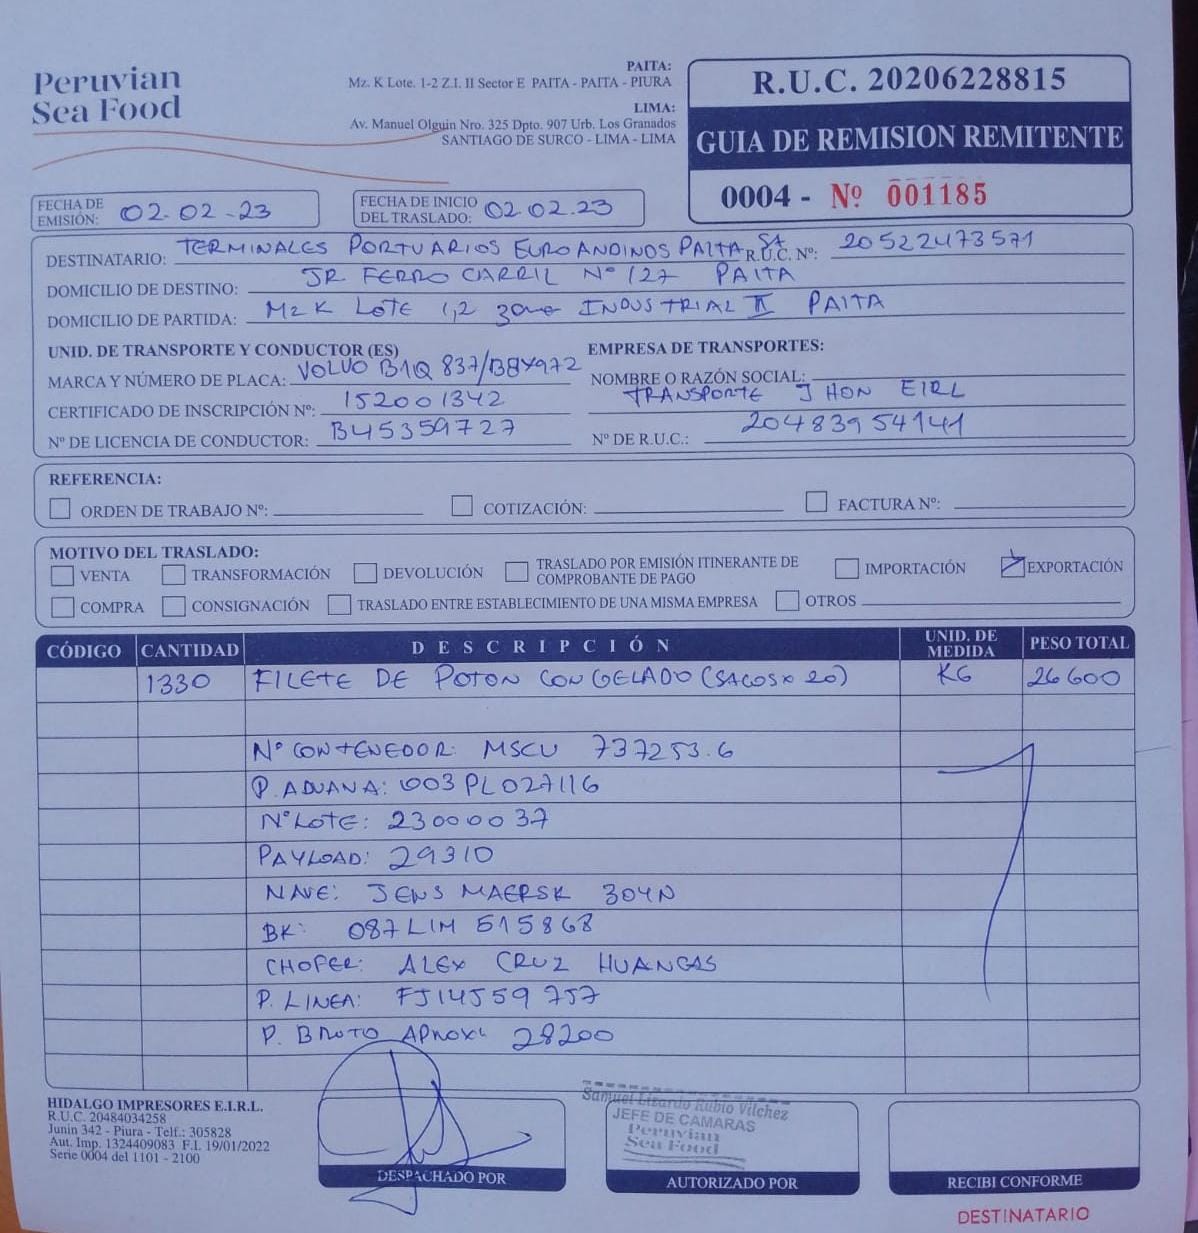 Peruvian
Sea Food
PAITA:
Mz. K Lote. 1-2 Z.I. II Sector E PAITA - PAITA - PIURA
LIMA:
Av. Manuel Olguin Nro. 325 Dpto. 907 Urb. Los Granados
SANTIAGO DE SURCO - LIMA - LIMA
R.U.C. 20206228815
GUIA DE REMISION REMITENTE
0004 - Nº 001185
FECHA DE EMISIÓN: 02-02-23
FECHA DE INICIO DEL TRASLADO: 02.02.23
DESTINATARIO: TERMINALES PORTUARIOS EUROANDINOS PAITA SA R.U.C. Nº: 20522473571
DOMICILIO DE DESTINO: JR FERRO CARRIL Nº 127 PAITA
DOMICILIO DE PARTIDA: MZ K LOTE 1,2 zona INDUSTRIAL II PAITA
UNID. DE TRANSPORTE Y CONDUCTOR (ES)
MARCA Y NÚMERO DE PLACA: VOLVO B1Q 837/B8Y972
CERTIFICADO DE INSCRIPCIÓN Nº: 152001342
Nº DE LICENCIA DE CONDUCTOR: B45359727
EMPRESA DE TRANSPORTES:
NOMBRE O RAZÓN SOCIAL:
TRANSPORTE JHON EIRL
Nº DE R.U.C.: 20483954141
REFERENCIA:
ORDEN DE TRABAJO Nº: COTIZACIÓN: FACTURA Nº:
MOTIVO DEL TRASLADO:
VENTA TRANSFORMACIÓN DEVOLUCIÓN TRASLADO POR EMISIÓN ITINERANTE DE COMPROBANTE DE PAGO IMPORTACIÓN EXPORTACIÓN
COMPRA CONSIGNACIÓN TRASLADO ENTRE ESTABLECIMIENTO DE UNA MISMA EMPRESA OTROS
CÓDIGO CANTIDAD DESCRIPCIÓN UNID. DE MEDIDA PESO TOTAL
1330 FILETE DE POTON CONGELADO (SACOS x 20) KG 26600
Nº CONTENEDOR: MSCU 737253.6
P. ADUANA: 003PL027116
Nº LOTE: 23000037
PAYLOAD: 29310
NAVE: JENS MAERSK 304N
BK: 087LIM 515868
CHOFER: ALEX CRUZ HUANGAS
P. LINEA: FJ14559757
P. BRUTO APROX: 28200
HIDALGO IMPRESORES E.I.R.L.
R.U.C. 20484034258
Junin 342 - Piura - Telf.: 305828
Aut. Imp. 1324409083 F.I. 19/01/2022
Serie 0004 del 1101 - 2100
DESPACHADO POR
Samuel Lizardo Rubio Vilchez
JEFE DE CAMARAS
Peruvian
Sea Food
AUTORIZADO POR
RECIBI CONFORME
DESTINATARIO